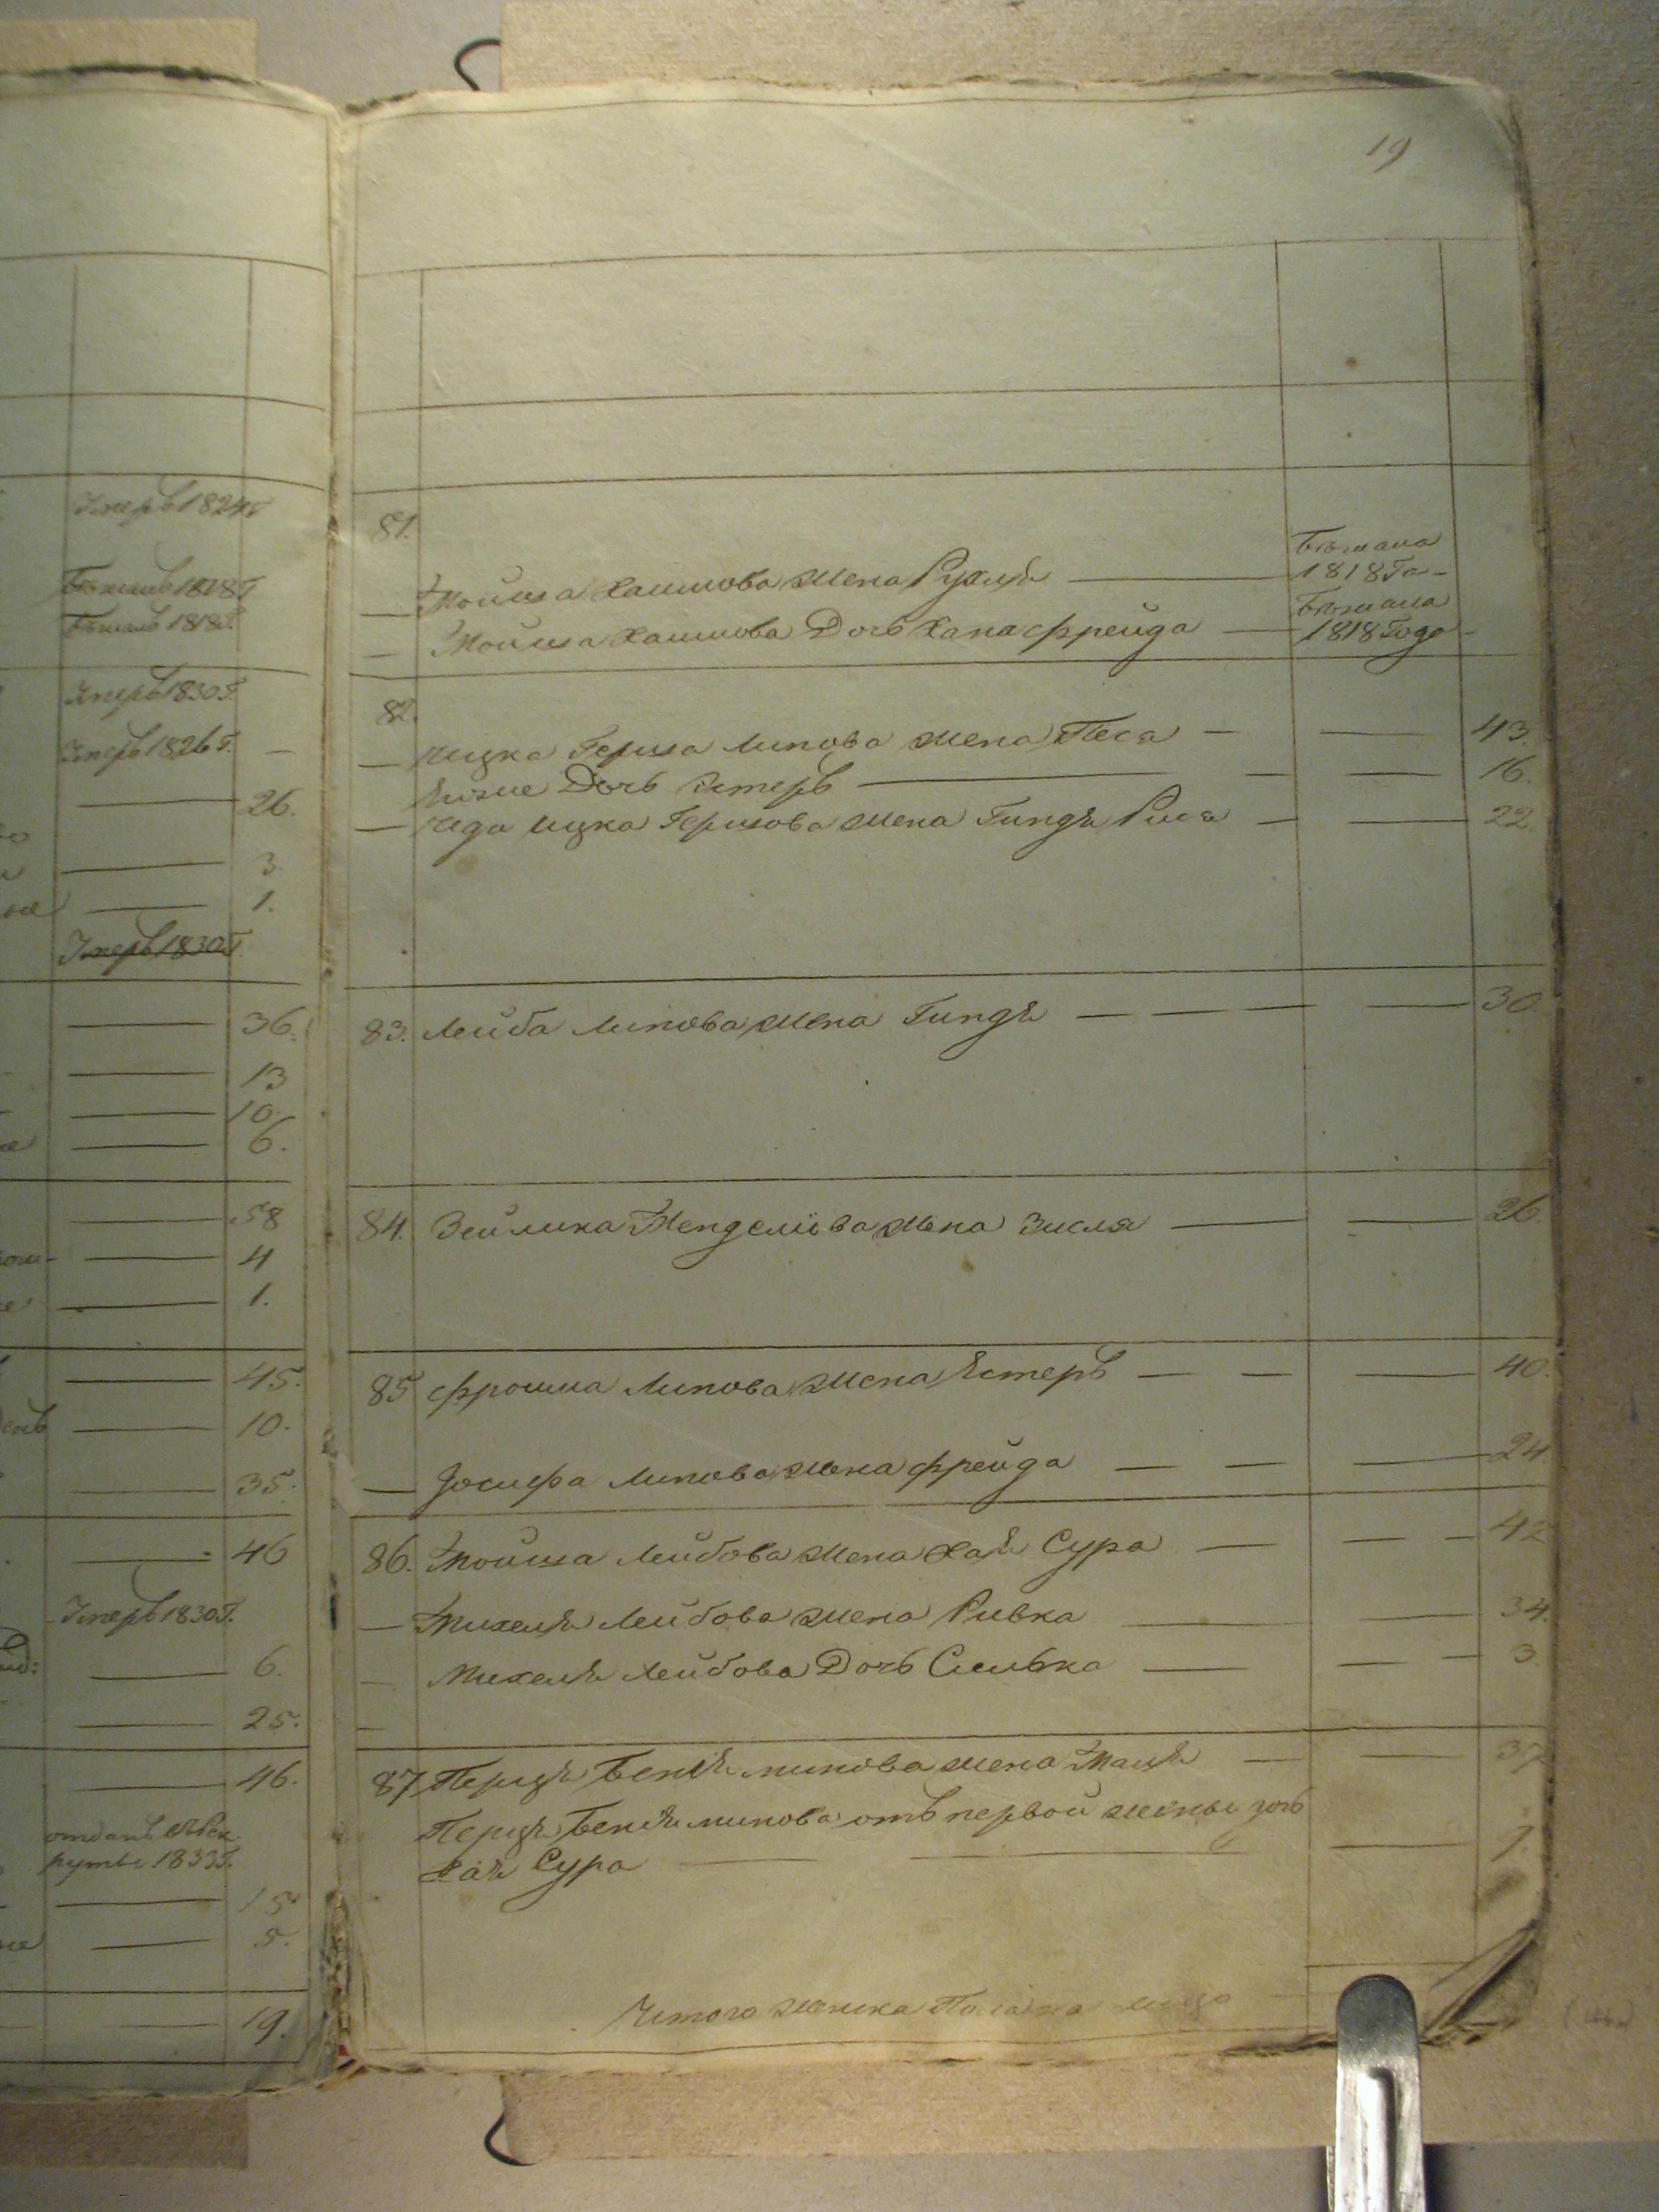 Умеръ 1824 г
Бѣжалъ 1818 г
Бѣжалъ 1818 г.
Умеръ 1830 г.
Умеръ 1826 г. —
26.
3
1.
Умеръ 1830 г.
36.
13
10.
6.
58
4
1.
45.
10.
35.
46
Умеръ 1830 г.
6.
25.
46.
отданъ въ рек
руты 1833 г.
15
5.
19.
19
81.
— Мойша Хаимова жена Рухля — Бѣжала 1818 го-
— Мойша Хаимова Дочь Хана фрейда — Бѣжала 1818 года
82.
— Ицка Герша Липова жена Песя — — 43.
Дочь Эстеръ — — 16.
— Ицка Гершова жена Гинда — — 22.
83. Лейба Липова жена Гиндя — — — — 30
84. Зейлика Менделёва жена Зисля — — 26
85 фроима Липова жена Эстеръ — — — 40.
— Іосифа Липова жена фрейда — — — 24.
86. Мойша Лейбова жена Хая Сура — — — 42
— Михеля Лейбова жена Ривка — — 34.
— Михеля Лейбова Дочь — — — 3
—
87 Перця Беніяминова жена — — 37
Перця Беніяминова отъ первой жены дочь
Хая Сура — — — 7.
Итого женска Пола на лицо